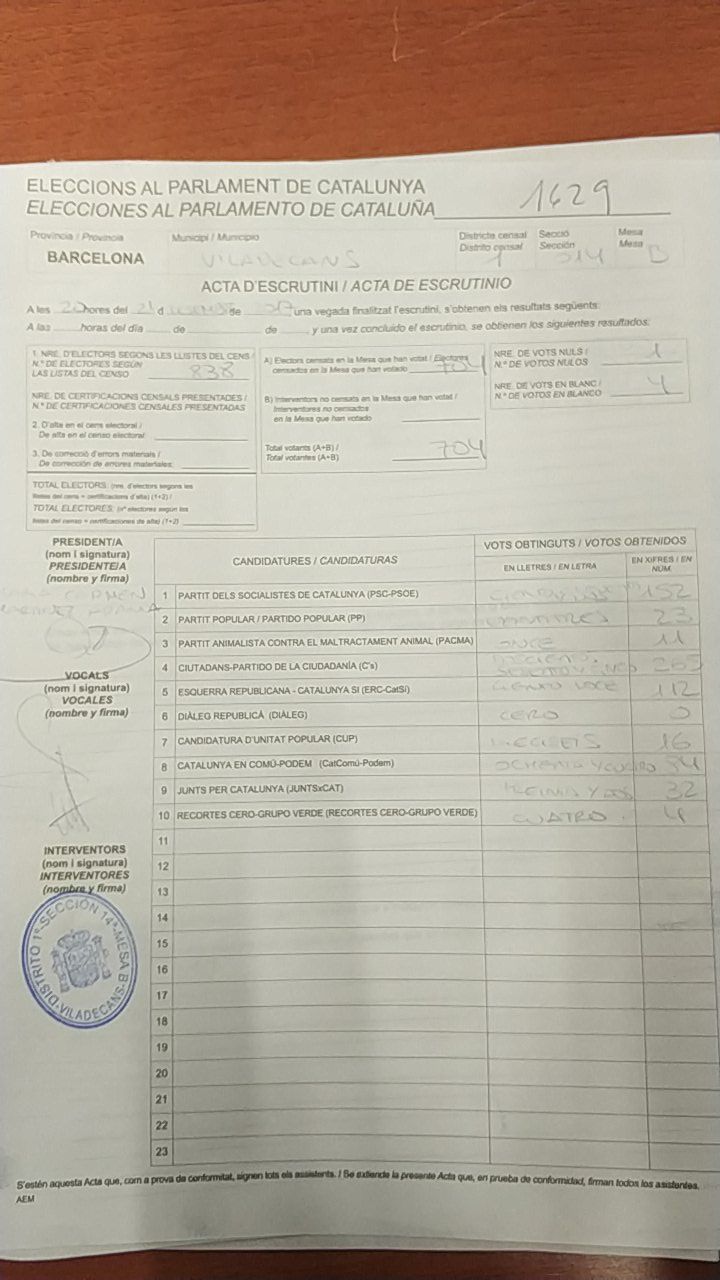 ELECCIONS AL PARLAMENT DE CATALUNYA
ELECCIONES AL PARLAMENTO DE CATALUÑA
1629
Província / Provincia
Municipi / Municipio
Districte censal
Distrito censal
Secció
Sección
Mesa
Mesa
BARCELONA
VILADECANS
1
014
B
ACTA D'ESCRUTINI / ACTA DE ESCRUTINIO
A les 20 hores del 21 d de 2017 una vegada finalitzat l'escrutini, s'obtenen els resultats següents:
A las horas del día de de y una vez concluido el escrutinio, se obtienen los siguientes resultados:
1. NRE. D'ELECTORS SEGONS LES LLISTES DEL CENS /
N.º DE ELECTORES SEGÚN
LAS LISTAS DEL CENSO 838
NRE. DE CERTIFICACIONS CENSALS PRESENTADES /
N.º DE CERTIFICACIONES CENSALES PRESENTADAS
2. D'alta en el cens electoral /
De alta en el censo electoral:
3. De correcció d'errors materials /
De corrección de errores materiales:
TOTAL ELECTORS: (nre. d'electors segons les
llistes del cens + certificacions d'alta) (1+2) /
TOTAL ELECTORES: (nº electores según las
listas del censo + certificaciones de alta) (1+2)
A) Electors censats en la Mesa que han votat / Electores
censados en la Mesa que han votado 704
B) Interventors no censats en la Mesa que han votat /
Interventores no censados
en la Mesa que han votado
Total votants (A+B) /
Total votantes (A+B) 704
NRE. DE VOTS NULS /
N.º DE VOTOS NULOS 1
NRE. DE VOTS EN BLANC /
N.º DE VOTOS EN BLANCO 4
PRESIDENT/A
(nom i signatura)
PRESIDENTE/A
(nombre y firma)
VOCALS
(nom i signatura)
VOCALES
(nombre y firma)
INTERVENTORS
(nom i signatura)
INTERVENTORES
(nombre y firma)
DISTRITO 1º-SECCIÓN 14ª-MESA B
-VILADECANS-
CANDIDATURES / CANDIDATURAS
VOTS OBTINGUTS / VOTOS OBTENIDOS
EN LLETRES / EN LETRA
EN XIFRES / EN NÚM.
1 PARTIT DELS SOCIALISTES DE CATALUNYA (PSC-PSOE) 152
2 PARTIT POPULAR / PARTIDO POPULAR (PP) 23
3 PARTIT ANIMALISTA CONTRA EL MALTRACTAMENT ANIMAL (PACMA) ONCE 11
4 CIUTADANS-PARTIDO DE LA CIUDADANÍA (C's) 265
5 ESQUERRA REPUBLICANA - CATALUNYA SÍ (ERC-CatSí) CIENTO DOCE 112
6 DIÀLEG REPUBLICÀ (DIÀLEG) CERO 0
7 CANDIDATURA D'UNITAT POPULAR (CUP) 16
8 CATALUNYA EN COMÚ-PODEM (CatComú-Podem) OCHENTA Y CUATRO 84
9 JUNTS PER CATALUNYA (JUNTSxCAT) TREINTA Y DOS 32
10 RECORTES CERO-GRUPO VERDE (RECORTES CERO-GRUPO VERDE) CUATRO 4
11
12
13
14
15
16
17
18
19
20
21
22
23
S'estén aquesta Acta que, com a prova de conformitat, signen tots els assistents. / Se extiende la presente Acta que, en prueba de conformidad, firman todos los asistentes.
AEM